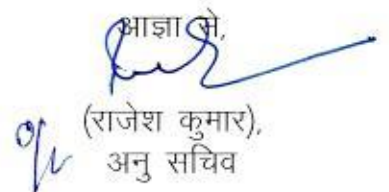 आज्ञा से,
(राजेश कुमार),
अनु सचिव